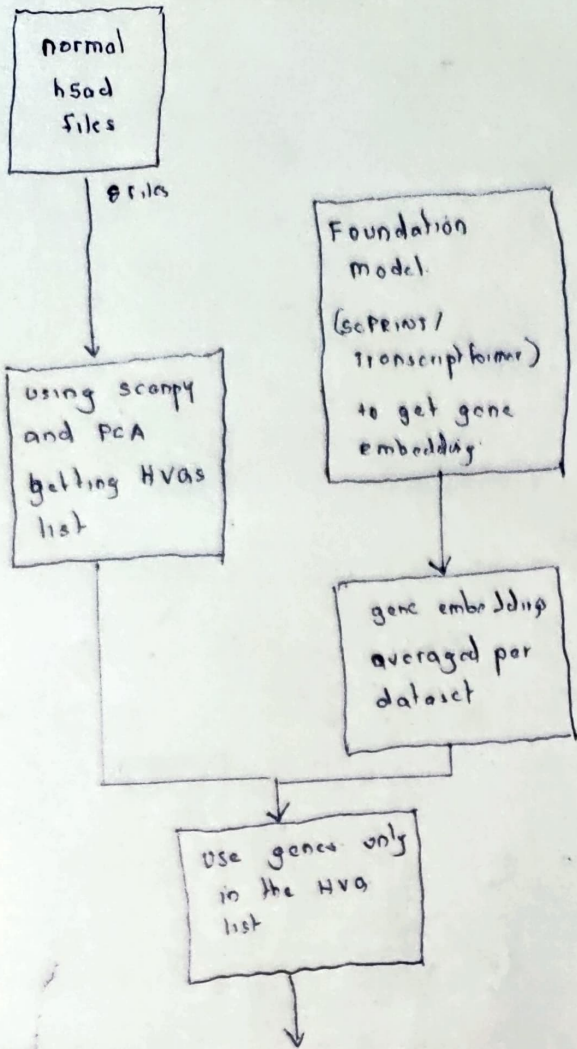 normal
h5ad
files
8 files
using scanpy
and PCA
getting HVGs
list
Foundation
model
(scPRINT/
transcriptformer)
to get gene
embedding
gene embeddings
averaged per
dataset
use genes only
in the HVG
list